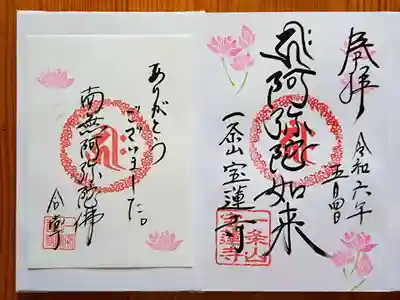 奉拝
令和六年
五月四日
阿弥陀如来
一条山 宝蓮寺
ありがとう
ございました。
南無阿弥陀佛
合掌